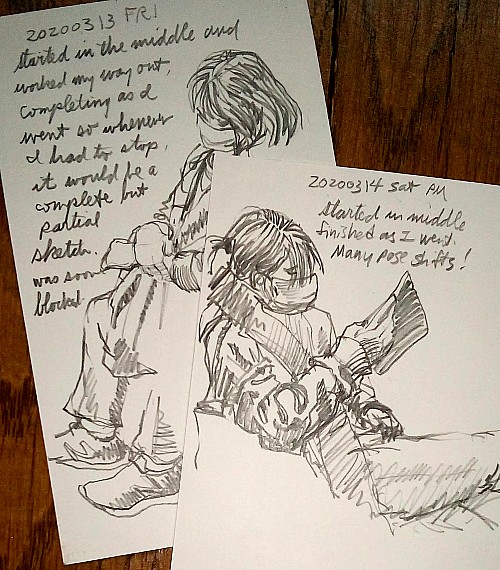 20200313 FRI
started in the middle and
worked my way out,
completing as I
went so whenever
I had to stop,
it would be a
complete but
partial
sketch.
was soon
blocked.
20200314 Sat PM
started in middle
finished as I went.
Many pose shifts!